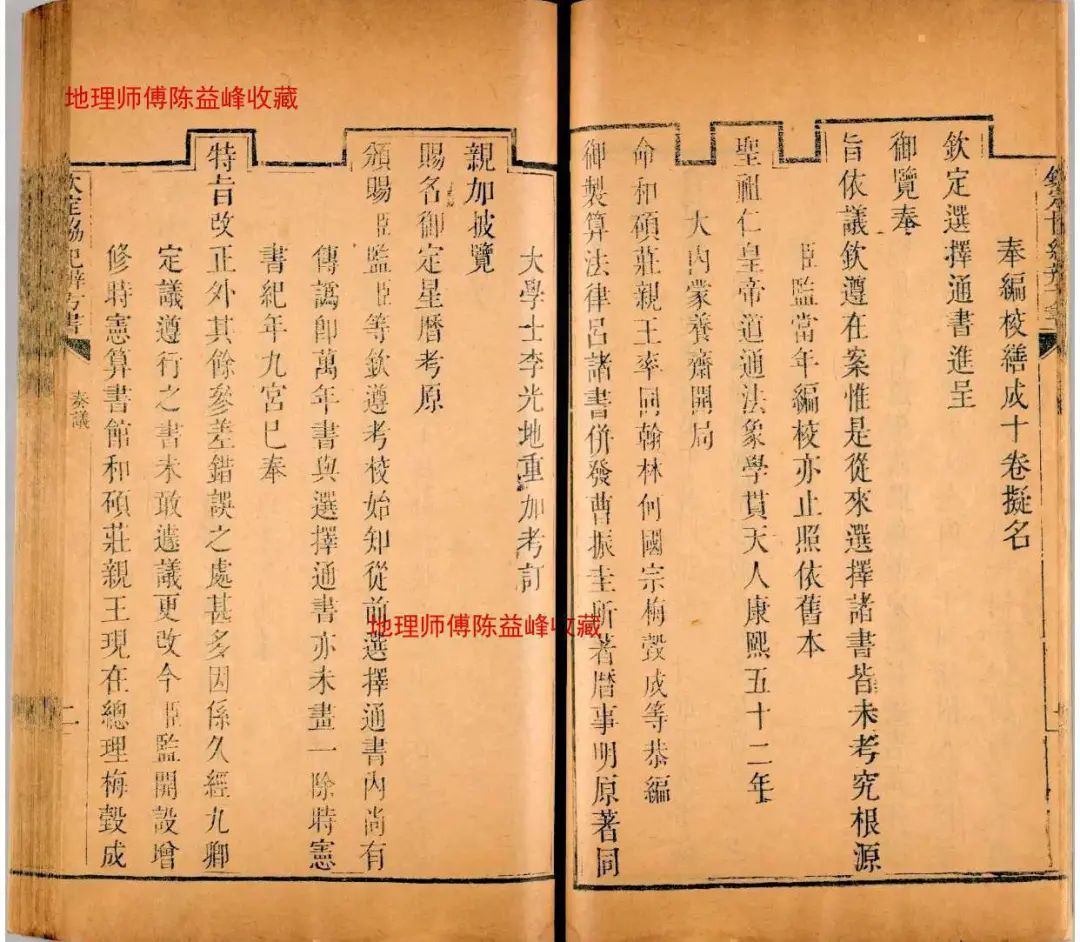 欽定
奉編校繕成十卷擬名
欽定選擇通書進呈
御覽奉
旨依議欽遵在案惟是從來選擇諸書皆未考究根源
臣監當年編校亦止照依舊本
聖祖仁皇帝道通法象學貫天人康熙五十二年
大內蒙養齋開局
命和碩莊親王率同翰林何國宗梅瑴成等恭編
御製算法律呂諸書併發曹振圭所著曆事明原著同
大學士李光地重加考訂
親加披覽
賜名御定星曆考原
頒賜臣監臣等欽遵考校始知從前選擇通書內尚有
傳譌卽萬年書與選擇通書亦未畫一除時憲
書紀年九宮已奉
特旨改正外其餘參差錯誤之處甚多因係久經九卿
定議遵行之書未敢遽議更改今臣監開設增
修時憲算書館和碩莊親王現在總理梅瑴成
欽定協紀辨方書
奏議
二
地理师傅陈益峰收藏
地理师傅陈益峰收藏